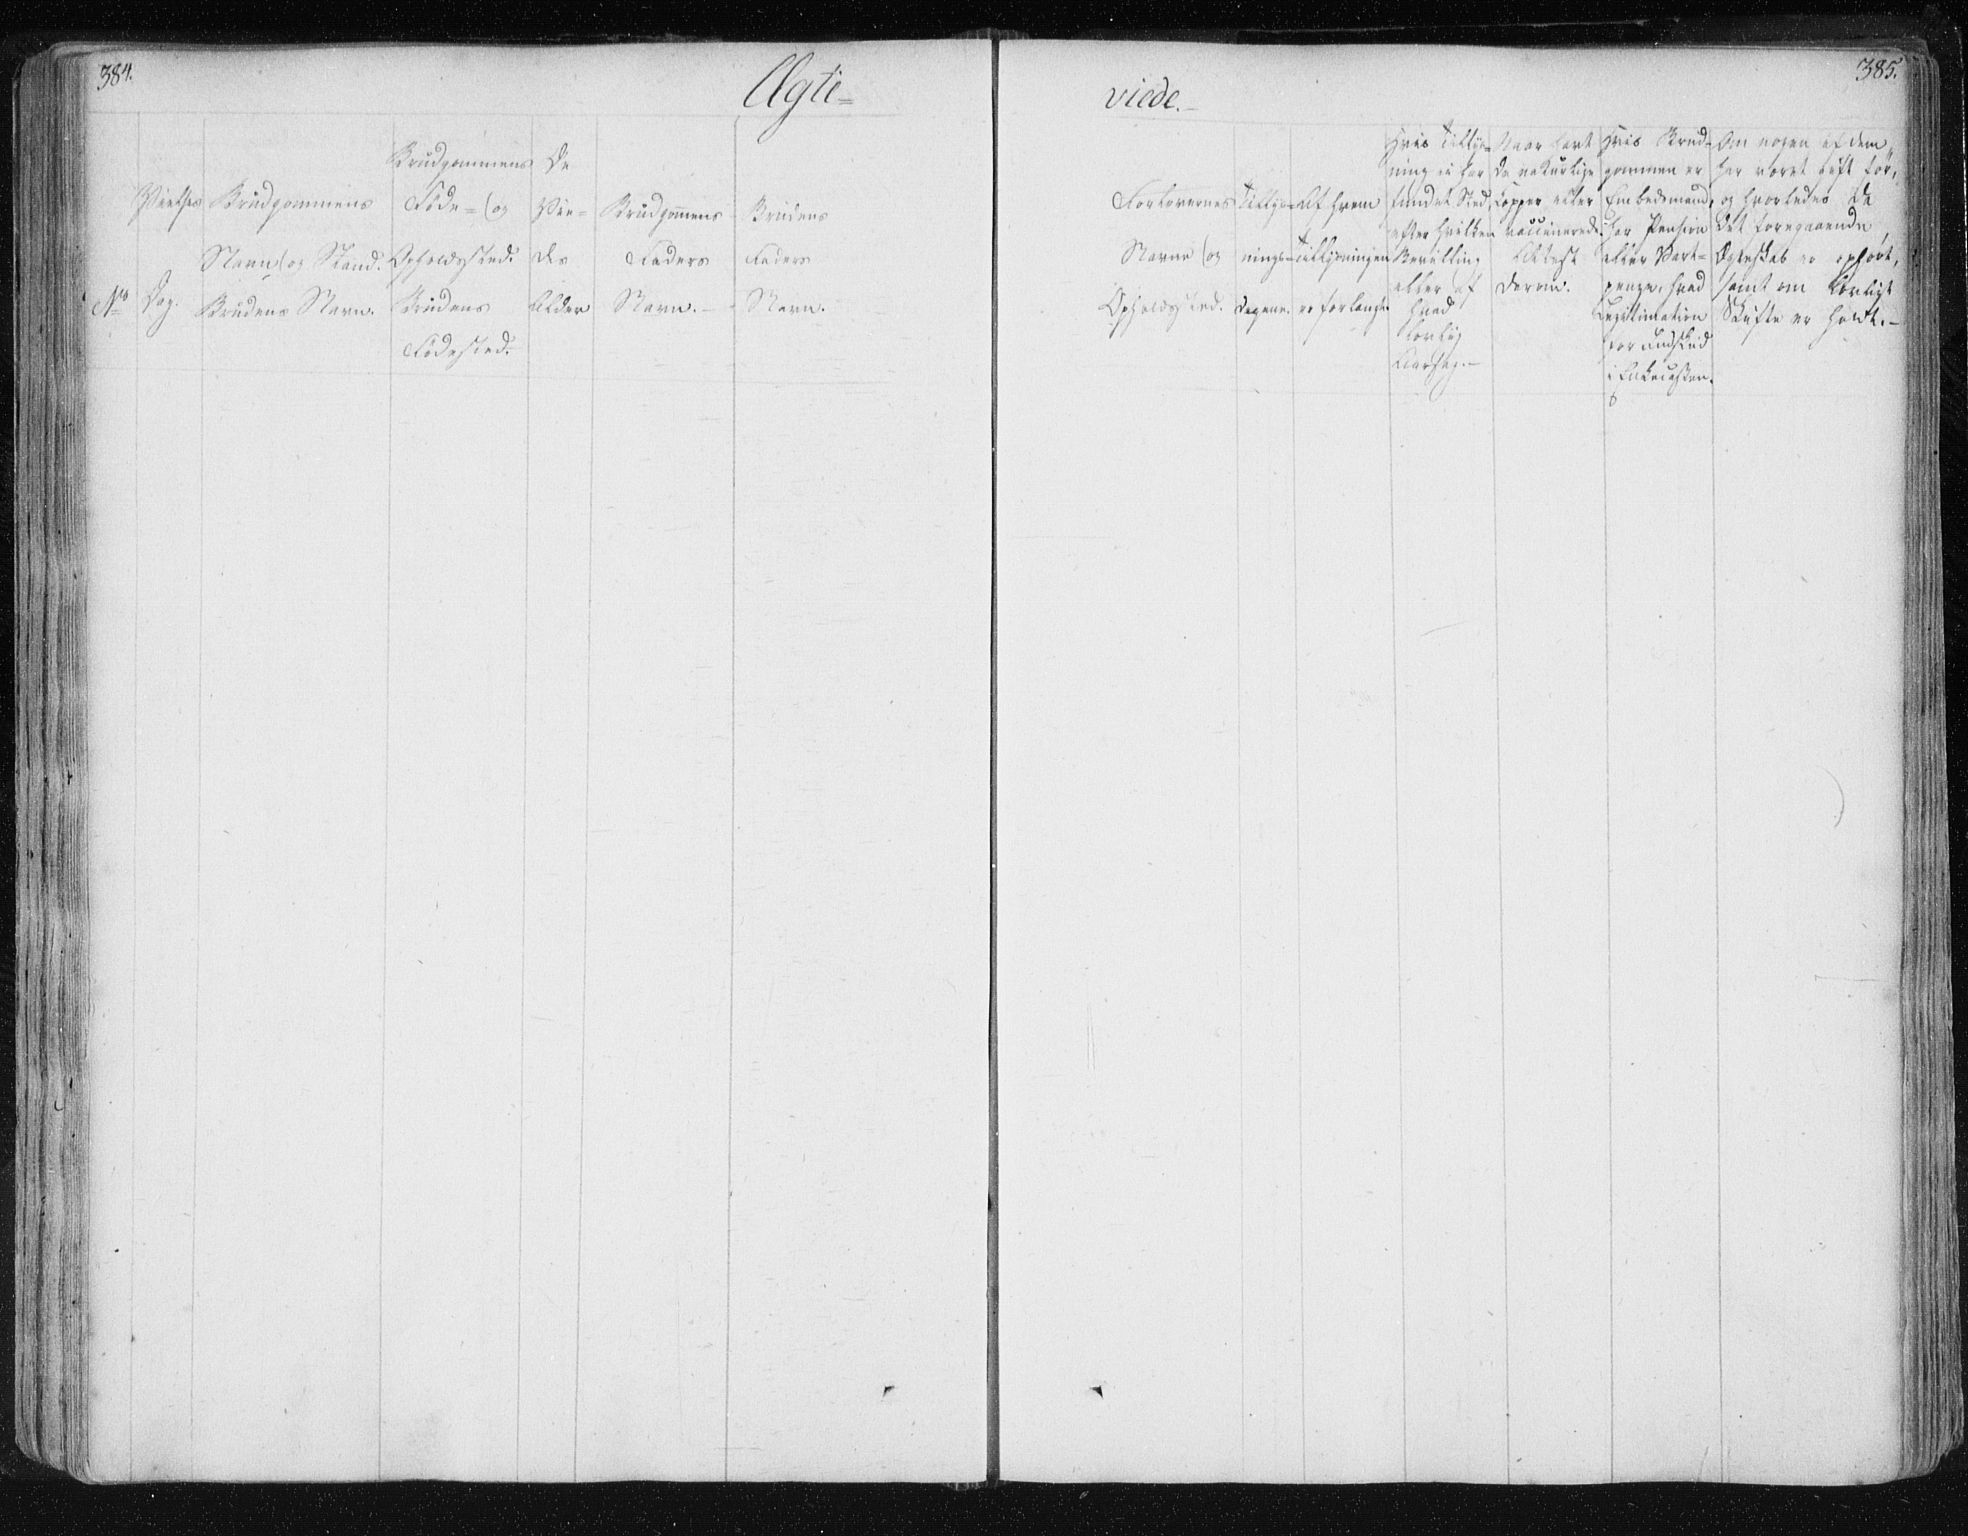 384.
Ægte=
No
Vielses
Dag.
Brudgommens
Navn og Stand.
Brudens Navn.
Brudgommens
Føde- og
Opholdssted.
Brudens
Fødested.
De
Vie=
des
Alder
Brudgom̅ens
Faders
Navn.
Brudens
Faders
Navn.
385.
viede.
Forlovernes
Navne og
Opholdssted.
Tillys=
nings=
Dagene.
Af hvem
Tillysningen
er forlangt.
Hvis Tillys=
ning ei har
fundet Sted,
efter hvilken
Bevilling
eller af
hvad
lovlig
Aarsag.
Naar havt
de naturlige
Kopper eller
vaccinerede.
Attest
derom.
Hvis Brud=
gommen er
Embedsmand,
har Pension
eller Vart=
penge, hvad
Legitimation
for Indskud
i Enkecassen.
Om nogen af dem
har været gift før,
og hvorledes de
det foregaaende
Ægteskab er ophørt,
samt om lovligt
Skifte er holdt.